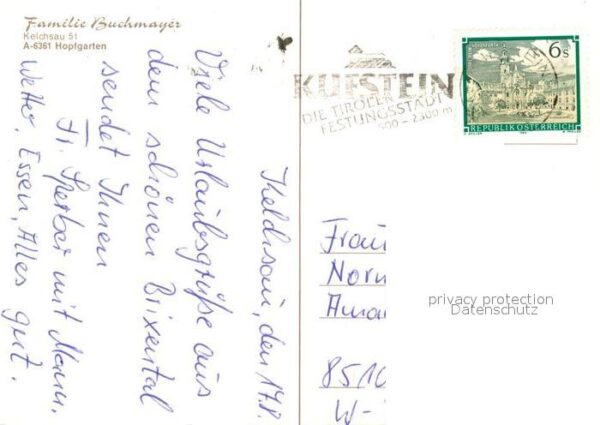 Familie Buchmayer
Kelchsau 51
A-6361 Hopfgarten
Kelchsau, den 17.8.
Viele Urlaubsgrüße aus
dem schönen Brixental
sendet Ihnen
Fr. Sperber mit Mann.
Wetter, Essen, Alles gut.
KUFSTEIN
DIE TIROLER
FESTUNGSSTADT
500 - 2300 m
6s
REPUBLIK ÖSTERREICH
Frau
Norm
8510
W-
privacy protection
Datenschutz